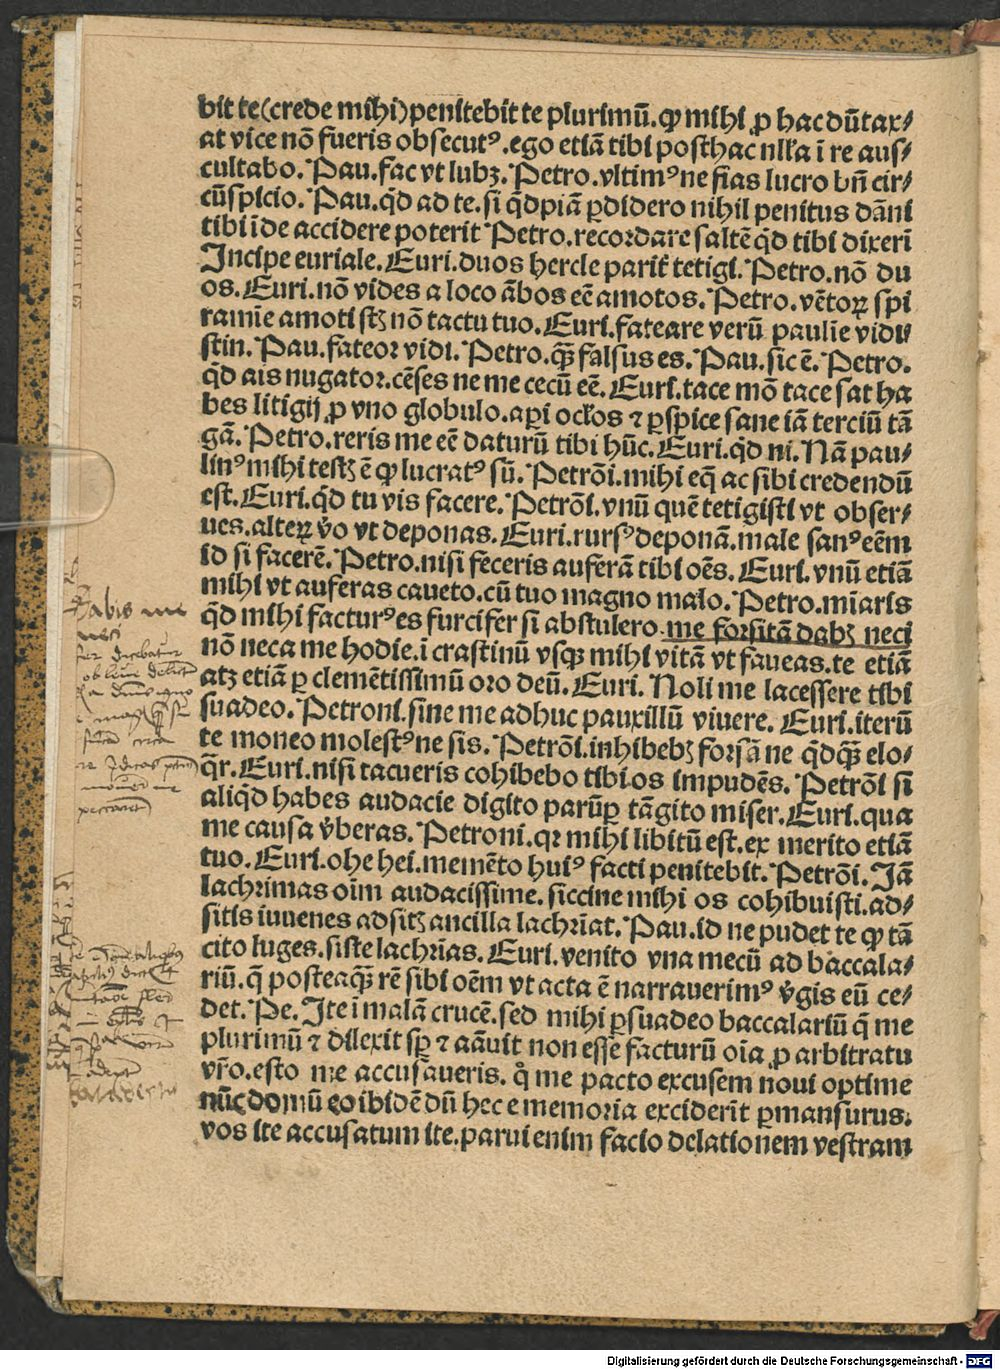 bit te(crede mihi)penitebit te plurimū.qꝫ mihi ꝓ hac dūtax/
at vice nō fueris obsecutꝰ.ego etiā tibi posthac nlła ī re aus/
cultabo. Pau.fac vt lubꝫ. Petro.vltimꝰ ne fias lucro bn̄ cir/
cūspicio. Pau.qd̄ ad te.si qd̄piā ꝑdidero nihil penitus dāni
tibi īde accidere poterit Petro.recordare saltē qd̄ tibi dixerī
Incipe euriale. Euri.duos hercle parit̄ tetigi. Petro.nō du
os. Euri.nō vides a loco ābos eē amotos. Petro.vētoꝝ spi
ramīe amoti sꝫ nō tactu tuo. Euri.fateare verū paulīe vidi/
stin. Pau.fateor vidi. Petro.qꝫ̄ falsus es. Pau.sic ē. Petro.
qd̄ ais nugator.cēses ne me cecū eē. Euri.tace mō tace sat ha
bes litigij ꝓ vno globulo.aꝑi ocłos ⁊ ꝑspice sane iā terciū tā
gā. Petro.reris me eē daturū tibi hūc. Euri.qd̄ ni. Nā pau/
linꝰ mihi testꝫ ē qꝫ lucratꝰ sū. Petrōi.mihi eq̄ ac sibi credendū
est. Euri.qd̄ tu vis facere. Petrōi.vnū quē tetigisti vt obser/
ues.alteꝝ v̄o vt deponas. Euri.rursꝰ deponā.male sanꝰ eēm
id si facerē. Petro.nisi feceris auferā tibi oēs. Euri.vnū etiā
mihi vt auferas caueto.cū tuo magno malo. Petro.mīaris
qd̄ mihi facturꝰ es furcifer si abstulero.me forsitā dabꝫ neci
nō neca me hodie.ī crastinū vsqꝫ mihi vitā vt faueas.te etiā
atꝫ etiā ꝑ clemētissimū oro deū. Euri. Noli me lacessere tibi
suadeo. Petroni.sine me adhuc pauxillū viuere. Euri.iterū
te moneo molestꝰ ne sis. Petrōi.inhibebꝫ forsā ne qd̄qꝫ̄ elo/
qr. Euri.nisi tacueris cohibebo tibi os impudēs. Petrōi si
aliqd̄ habes audacie digito parūꝑ tāgito miser. Euri.qua
me causa v̄beras. Petroni.qr mihi libitū est.ex merito etiā
tuo. Euri.ohe hei.memēto huiꝰ facti penitebit. Petrōi. Iā
lachrimas oīm audacissime.siccine mihi os cohibuisti.ad/
sitis iuuenes adsitꝫ ancilla lachrīat. Pau.id ne pudet te qꝫ tā
cito luges.siste lachrīas. Euri.venito vna mecū ad baccala/
riū.q̄ posteaqꝫ̄ rē sibi oēm vt acta ē narrauerimꝰ v̄gis eū ce/
det. Pe. Ite ī malā crucē.sed mihi ꝑsuadeo baccalariū q̄ me
plurimū ⁊ dilexit sꝑ ⁊ aāuit non esse facturū oīa ꝓ arbitratu
vr̄o.esto me accusaueris. q̊ me pacto excusem noui optime
nūc domū eo ibidē dū hec e memoria exciderīt ꝑmansurus.
vos ite accusatum ite.parui enim facio delationem vestram
Digitalisierung gefördert durch die Deutsche Forschungsgemeinschaft - DFG